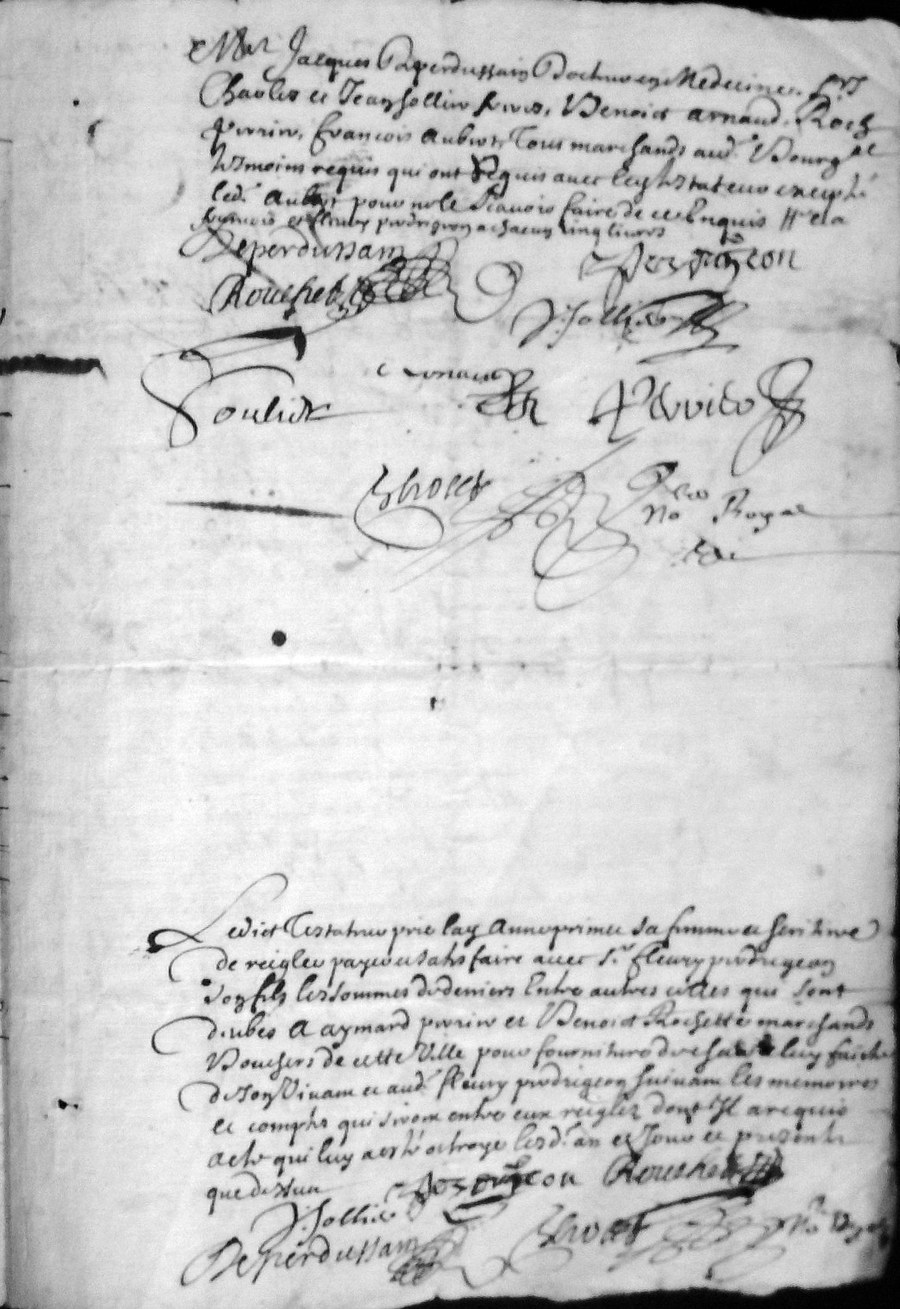 Mre Jacques Deperdussain Docteur en Medecine, Srs
Charles et Jean Jollier freres, Benoist Arnaud, Roch
Perrier, François Aubert Tous marchands aud. Bourg et
tesmoins requis qui ont signé avec led testateur excepté
led. Aubert pour ne le scavoir faire de ce enquis Ite a
et fleury perdrigeon a chacun cinq livres
Deperdussain perdrigeon
Rouchet J. Jollier
Arnaud Perrier
No Royal
Ledict Testateur prie lad Anne sa femme et heritiere
de reigler payer et satisfaire avec Sr. fleury perdrigeon
son fils les sommes de deniers Entre autres celles qui sont
deubes a aymard perrier et Benoist Rochette marchands
Bouchers de cette Ville pour fourniture de luy faicte
de son Vivant et aud. fleury perdrigeon suivant les memoires
et comptes qui seront entre eux reiglez dont Il a requis
acte qui luy a esté octroyé lesd. an et Jour et presents
que dessus perdrigeon Rouchet
J. Jollier
Deperdussain No